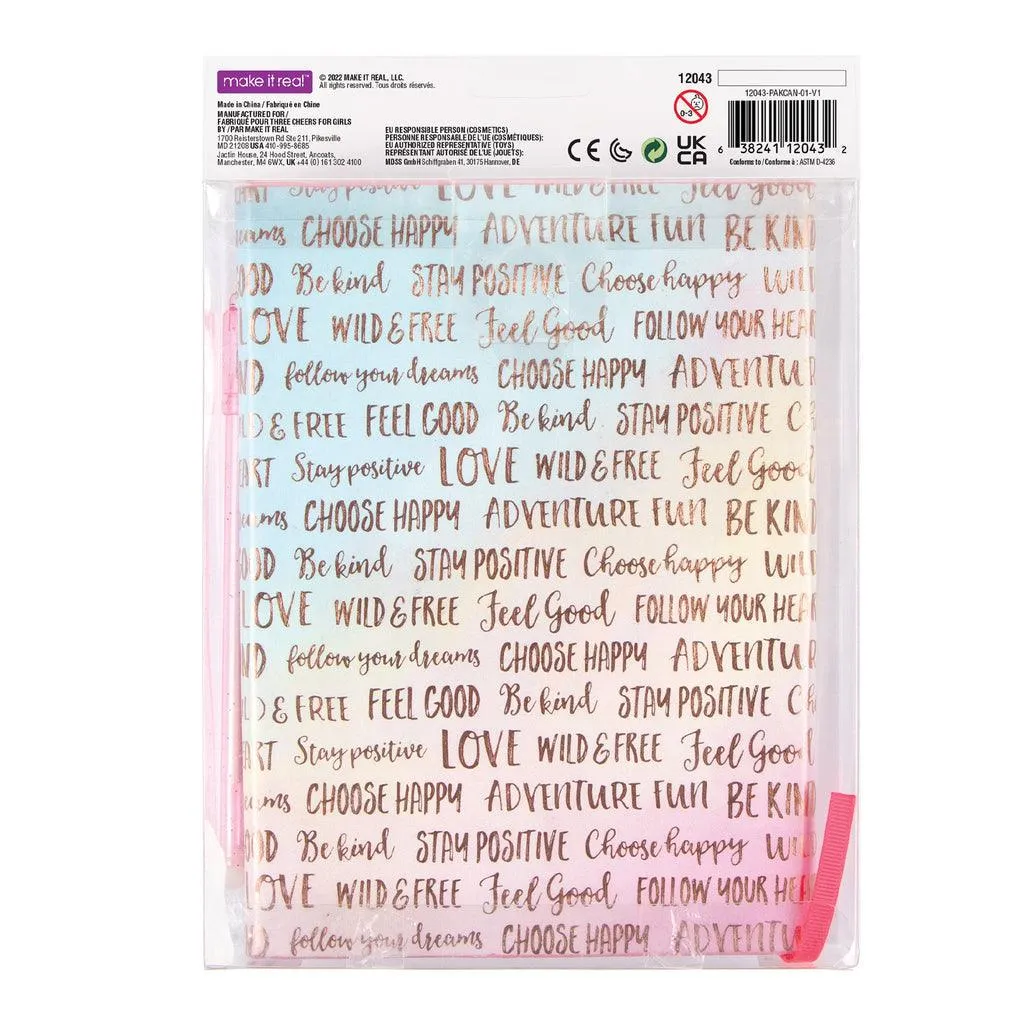 make it real™
© 2022 MAKE IT REAL, LLC.
All rights reserved. Tous droits réservés.
Made in China / Fabriqué en Chine
MANUFACTURED FOR /
FABRIQUÉ POUR THREE CHEERS FOR GIRLS
BY / PAR MAKE IT REAL
1700 Reisterstown Rd Ste 211, Pikesville
MD 21208 USA 410-995-8685
Jactin House, 24 Hood Street, Ancoats,
Manchester, M4 6WX, UK +44 (0) 161 302 4100
EU RESPONSIBLE PERSON (COSMETICS)
PERSONNE RESPONSABLE DE L'UE (COSMÉTIQUES):
EU AUTHORIZED REPRESENTATIVE (TOYS)
REPRÉSENTANT AUTORISÉ DE L'UE (JOUETS):
MDSS GmbH Schiffgraben 41, 30175 Hannover, DE
CE
12043
0-3
UK
CA
12043-PAKCAN-01-V1
6 38241 12043 2
Conforms to / Conforme à : ASTM D-4236
ART Stay positive LOVE WILD & FREE Feel Good
eams CHOOSE HAPPY ADVENTURE FUN BE KIND
OOD Be kind STAY POSITIVE Choose happy WIL
LOVE WILD & FREE Feel Good FOLLOW YOUR HEAR
ND follow your dreams CHOOSE HAPPY ADVENTUR
LD & FREE FEEL GOOD Be kind STAY POSITIVE C
EART Stay positive LOVE WILD & FREE Feel Good
eams CHOOSE HAPPY ADVENTURE FUN BE KIN
OOD Be kind STAY POSITIVE Choose happy WIL
LOVE WILD & FREE Feel Good FOLLOW YOUR HEA
ND follow your dreams CHOOSE HAPPY ADVENTUR
LD & FREE FEEL GOOD Be kind STAY POSITIVE Ch
ART Stay positive LOVE WILD & FREE Feel Good
eams CHOOSE HAPPY ADVENTURE FUN BE KIND
OOD Be kind STAY POSITIVE Choose happy WIL
LOVE WILD & FREE Feel Good FOLLOW YOUR HEA
ND follow your dreams CHOOSE HAPPY ADVENTU